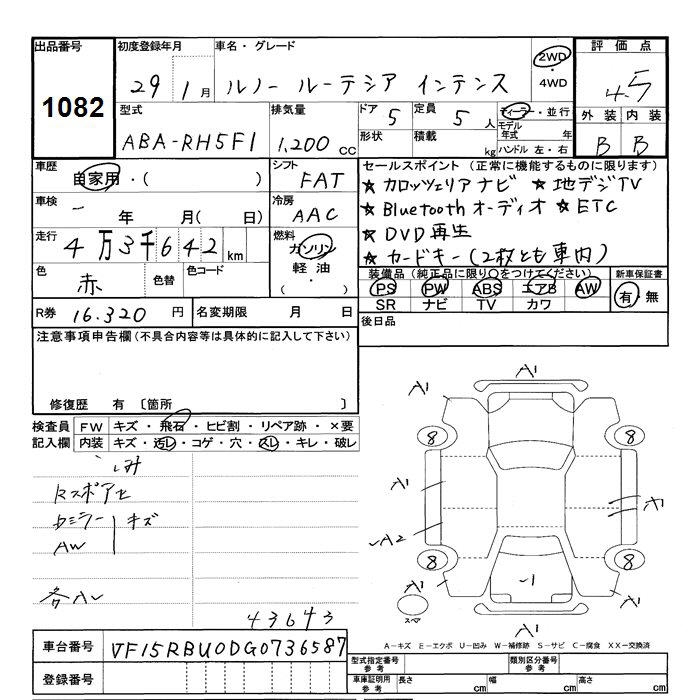 出品番号 初度登録年月 車名・グレード 2WD ・ 4WD 評価点
1082 29 1月 ルノー ルーテシア インテンス 4.5
型式 排気量 ドア 5 定員 5人 ディーラー・並行 外装 内装
ABA-RH5F1 1,200 CC 形状 積載 kg モデル年式 年 ハンドル 左・右 B B
車歴 自家用・( ) シフト FAT セールスポイント (正常に機能するものに限ります)
★カロッツェリアナビ ★地デジTV
車検 - 年 月( 日) 冷房 AAC ★Bluetoothオーディオ ★ETC
★DVD再生
走行 4万3千642km 燃料 ガソリン 軽油 ( ・ ) ★カードキー(2枚とも車内)
色 赤 色替 色コード 装備品 (純正品に限り○をつけてください) 新車保証書
PS PW ABS エアB AW 有・無
SR ナビ TV カワ
R券 16.320円 名変期限 月 日 後日品
注意事項申告欄(不具合内容等は具体的に記入して下さい)
修復歴 有 〔箇所 〕
検査員 FW キズ・飛石・ヒビ割・リペア跡・×要
記入欄 内装 キズ・汚レ・コゲ・穴・スレ・キレ・破レ
AW キズ
43643
A1
A1 A1
8 8
A1
A2
8 8
A1 A1
A1
スペア
A-キズ E-エクボ U-凹み W-補修跡 S-サビ C-腐食 XX-交換済
車台番号 VF15RBU0DG0736587
型式指定番号 参考 類別区分番号 参考
登録番号 車庫証明用 参考 長さ cm 幅 cm 高さ cm